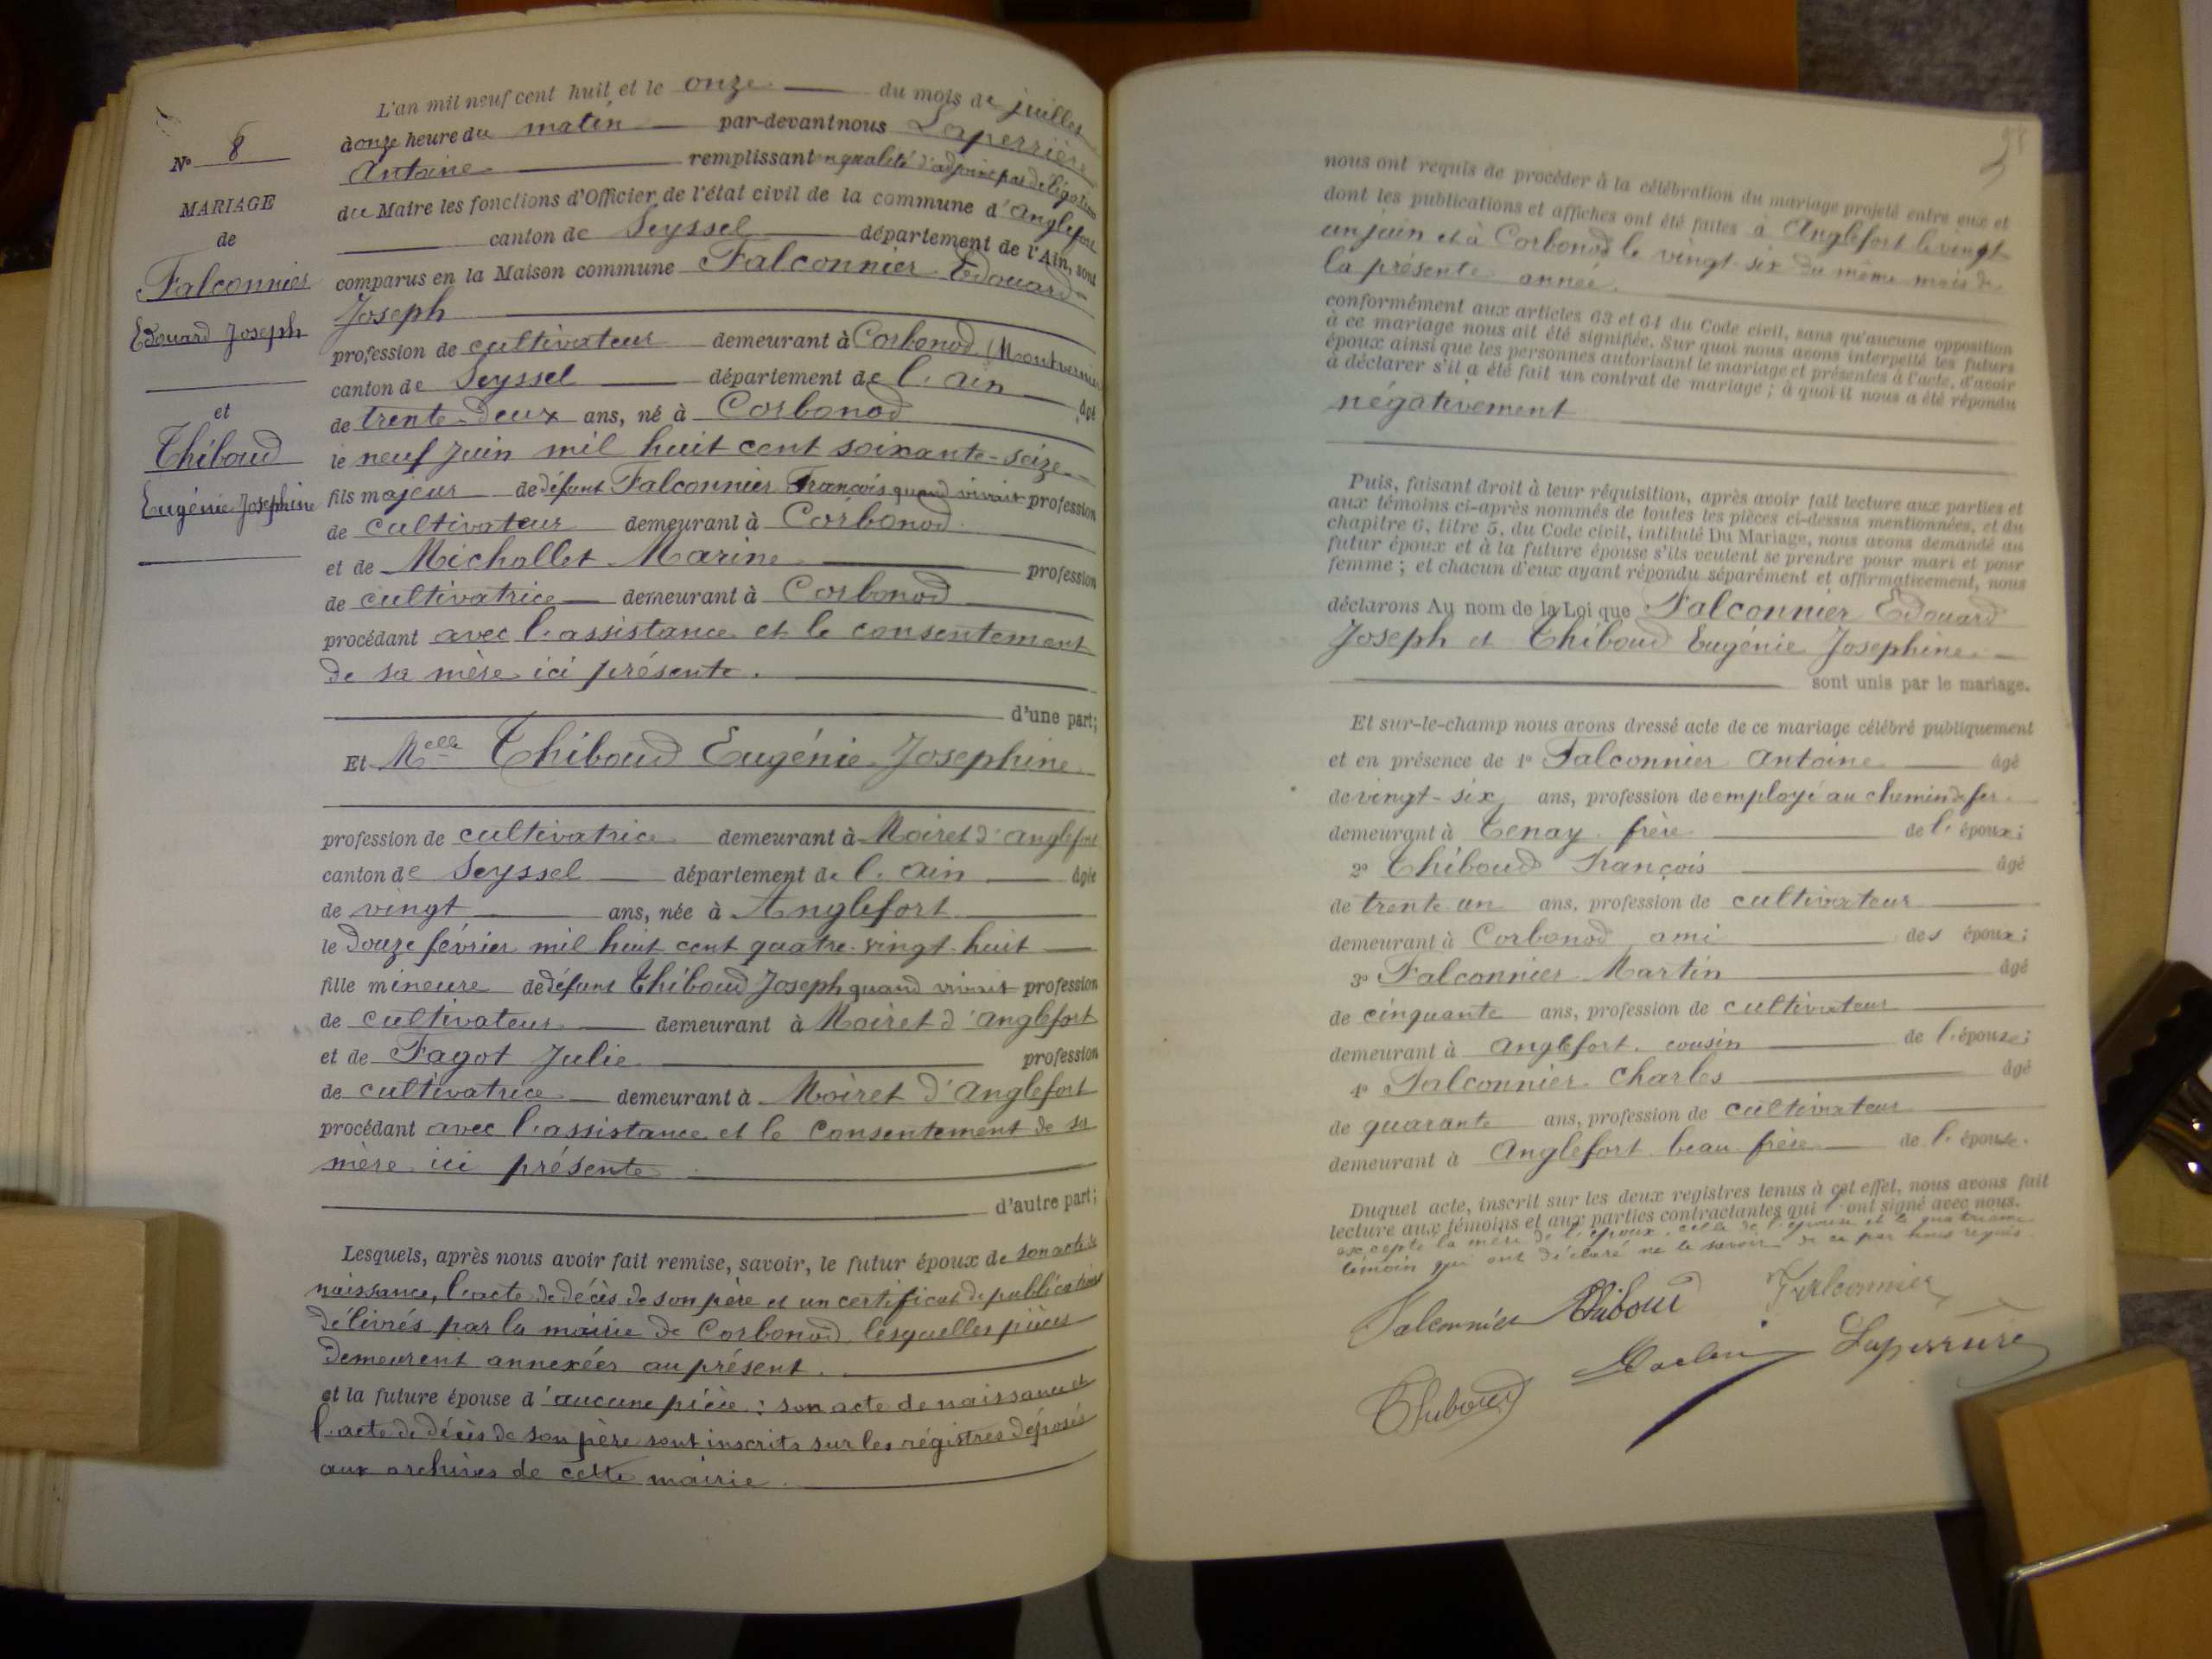 N° 8
MARIAGE
de
Falconnier
Edouard Joseph
et
Thiboud
Eugénie Josephine
L'an mil neuf cent huit et le onze du mois de juillet
à onze heure du matin par-devant nous Laperrière
Antoine remplissant en qualité d'adjoint par délégation
du Maire les fonctions d'Officier de l'état civil de la commune d'Anglefort
canton de Seyssel département de l'Ain, sont
comparus en la Maison commune Falconnier Edouard
Joseph
profession de cultivateur demeurant à Corbonod
canton de Seyssel département de l'Ain âgé
de trente-deux ans, né à Corbonod
le neuf juin mil huit cent soixante-seize
fils majeur de défunt Falconnier François quand vivait profession
de cultivateur demeurant à Corbonod
et de Michollet Marine profession
de cultivatrice demeurant à Corbonod
procédant avec l'assistance et le consentement
de sa mère ici présente.
d'une part;
Et Melle Thiboud Eugénie Josephine
profession de cultivatrice demeurant à Moiret d'Anglefort
canton de Seyssel département de l'Ain âgée
de vingt ans, née à Anglefort
le douze février mil huit cent quatre-vingt-huit
fille mineure de défunt Thiboud Joseph quand vivait profession
de cultivateur demeurant à Moiret d'Anglefort
et de Fagot Julie profession
de cultivatrice demeurant à Moiret d'Anglefort
procédant avec l'assistance et le consentement de sa
mère ici présente
d'autre part;
Lesquels, après nous avoir fait remise, savoir, le futur époux de son acte de
naissance, l'acte de décès de son père et un certificat de publication
délivrés par la mairie de Corbonod lesquelles pièces
demeurent annexées au présent.
et la future épouse d'aucune pièce : son acte de naissance et
l'acte de décès de son père sont inscrits sur les régistres déposés
aux archives de cette mairie.
98
nous ont requis de procéder à la célébration du mariage projeté entre eux et
dont les publications et affiches ont été faites à Anglefort le vingt-
un juin et à Corbonod le vingt-six du même mois de
la présente année.
conformément aux articles 63 et 64 du Code civil, sans qu'aucune opposition
à ce mariage nous ait été signifiée. Sur quoi nous avons interpellé les futurs
époux ainsi que les personnes autorisant le mariage et présentes à l'acte, d'avoir
à déclarer s'il a été fait un contrat de mariage ; à quoi il nous a été répondu
négativement
Puis, faisant droit à leur réquisition, après avoir fait lecture aux parties et
aux témoins ci-après nommés de toutes les pièces ci-dessus mentionnées, et du
chapitre 6, titre 5, du Code civil, intitulé Du Mariage, nous avons demandé au
futur époux et à la future épouse s'ils veulent se prendre pour mari et pour
femme ; et chacun d'eux ayant répondu séparément et affirmativement, nous
déclarons Au nom de la Loi que Falconnier Edouard
Joseph et Thiboud Eugénie Josephine
sont unis par le mariage.
Et sur-le-champ nous avons dressé acte de ce mariage célébré publiquement
et en présence de 1° Falconnier Antoine âgé
de vingt-six ans, profession de employé au chemin de fer
demeurant à Tenay frère de l'époux;
2° Thiboud François âgé
de trente un ans, profession de cultivateur
demeurant à Corbonod ami des époux;
3° Falconnier Martin âgé
de cinquante ans, profession de cultivateur
demeurant à Anglefort cousin de l'épouse;
4° Falconnier Charles âgé
de quarante ans, profession de cultivateur
demeurant à Anglefort beau frère de l'épouse.
Duquel acte, inscrit sur les deux registres tenus à cet effet, nous avons fait
lecture aux témoins et aux parties contractantes qui l'ont signé avec nous.
excepté la mère de l'époux, celle de l'épouse et le quatrième
témoin qui ont déclaré ne le savoir de ce par nous requis
Falconnier Thiboud Falconnier
Thiboud Laperrière